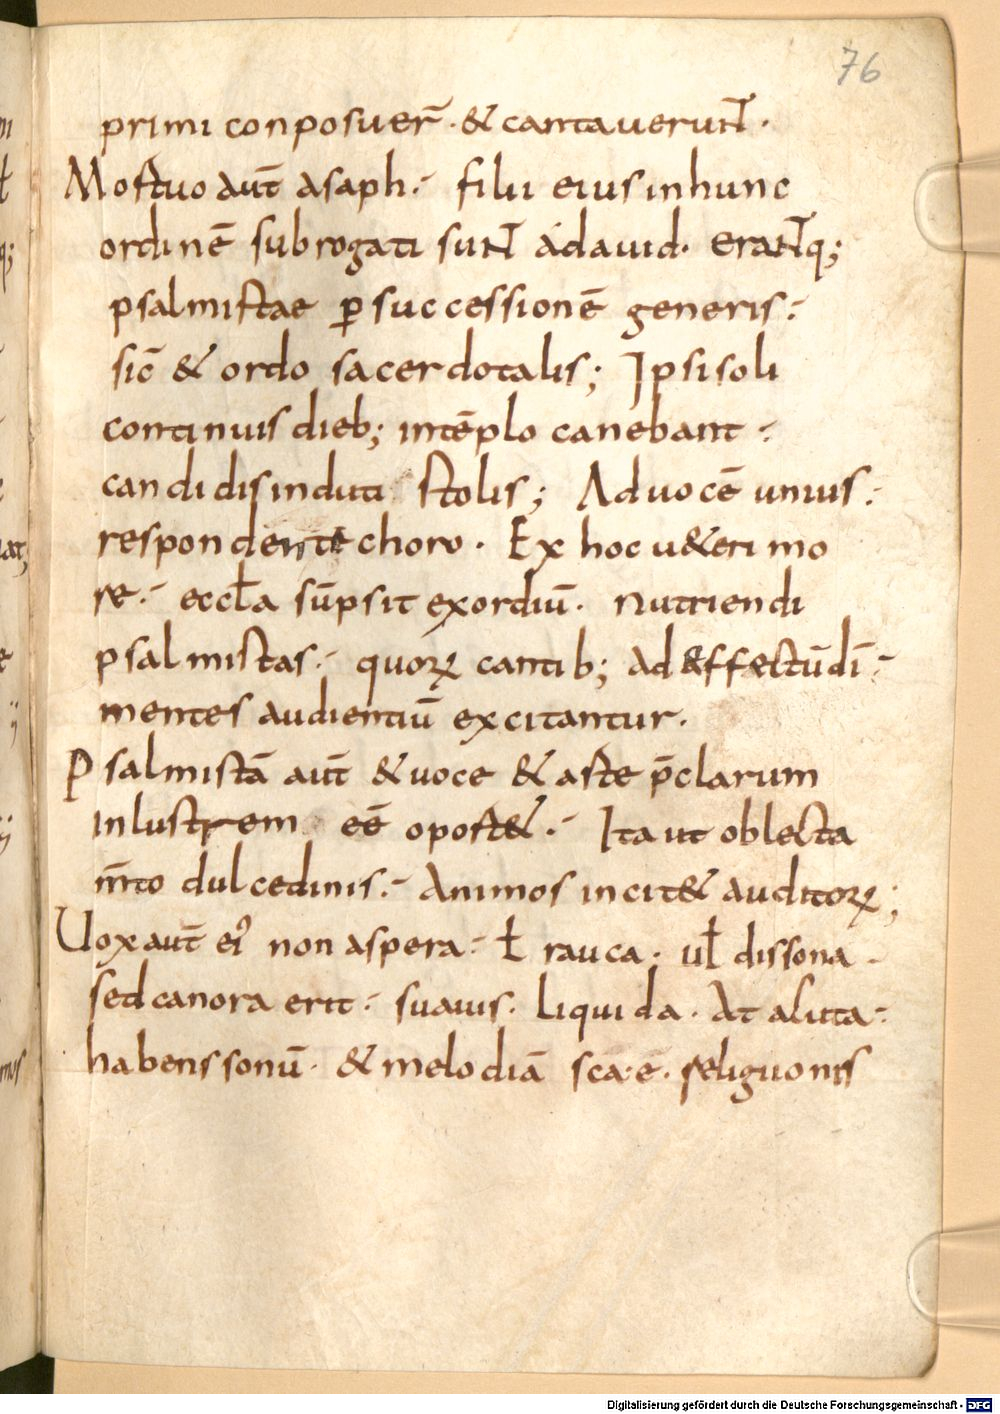 76
primi conposuer̄ · & cantauerunt ·
Mortuo aut̄ asaph · filii eius inhunc
ordinē subrogati sunt ádauid · erantq;
psalmistae ꝑ successionē generis ·
sic̄ & ordo sacerdotalis; Ipsi soli
continuis dieb; intēplo canebant ·
candidis induti stolis; Ad uocē unius ·
respondente choro · Ex hoc u&eri mo
re · eccƚa sūpsit exordiū · nutriendi
psalmistas · quoꝝ cantib; ad &ffectūdī ·
mentes audientiū excitantur ·
Psalmistā aut̄ & uoce & arte p̄clarum
inlustrem eē oport& · Ita ut oblecta
m̄to dulcedinis · Animos incit& auditoꝝ;
Uox aut̄ ei᾽ non aspera · ƚ rauca · uƚ dissona ·
sed canora erit · suauis · liquida · At alita ·
habens sonū · & melodiā scāe · religionis
Digitalisierung gefördert durch die Deutsche Forschungsgemeinschaft - DFG